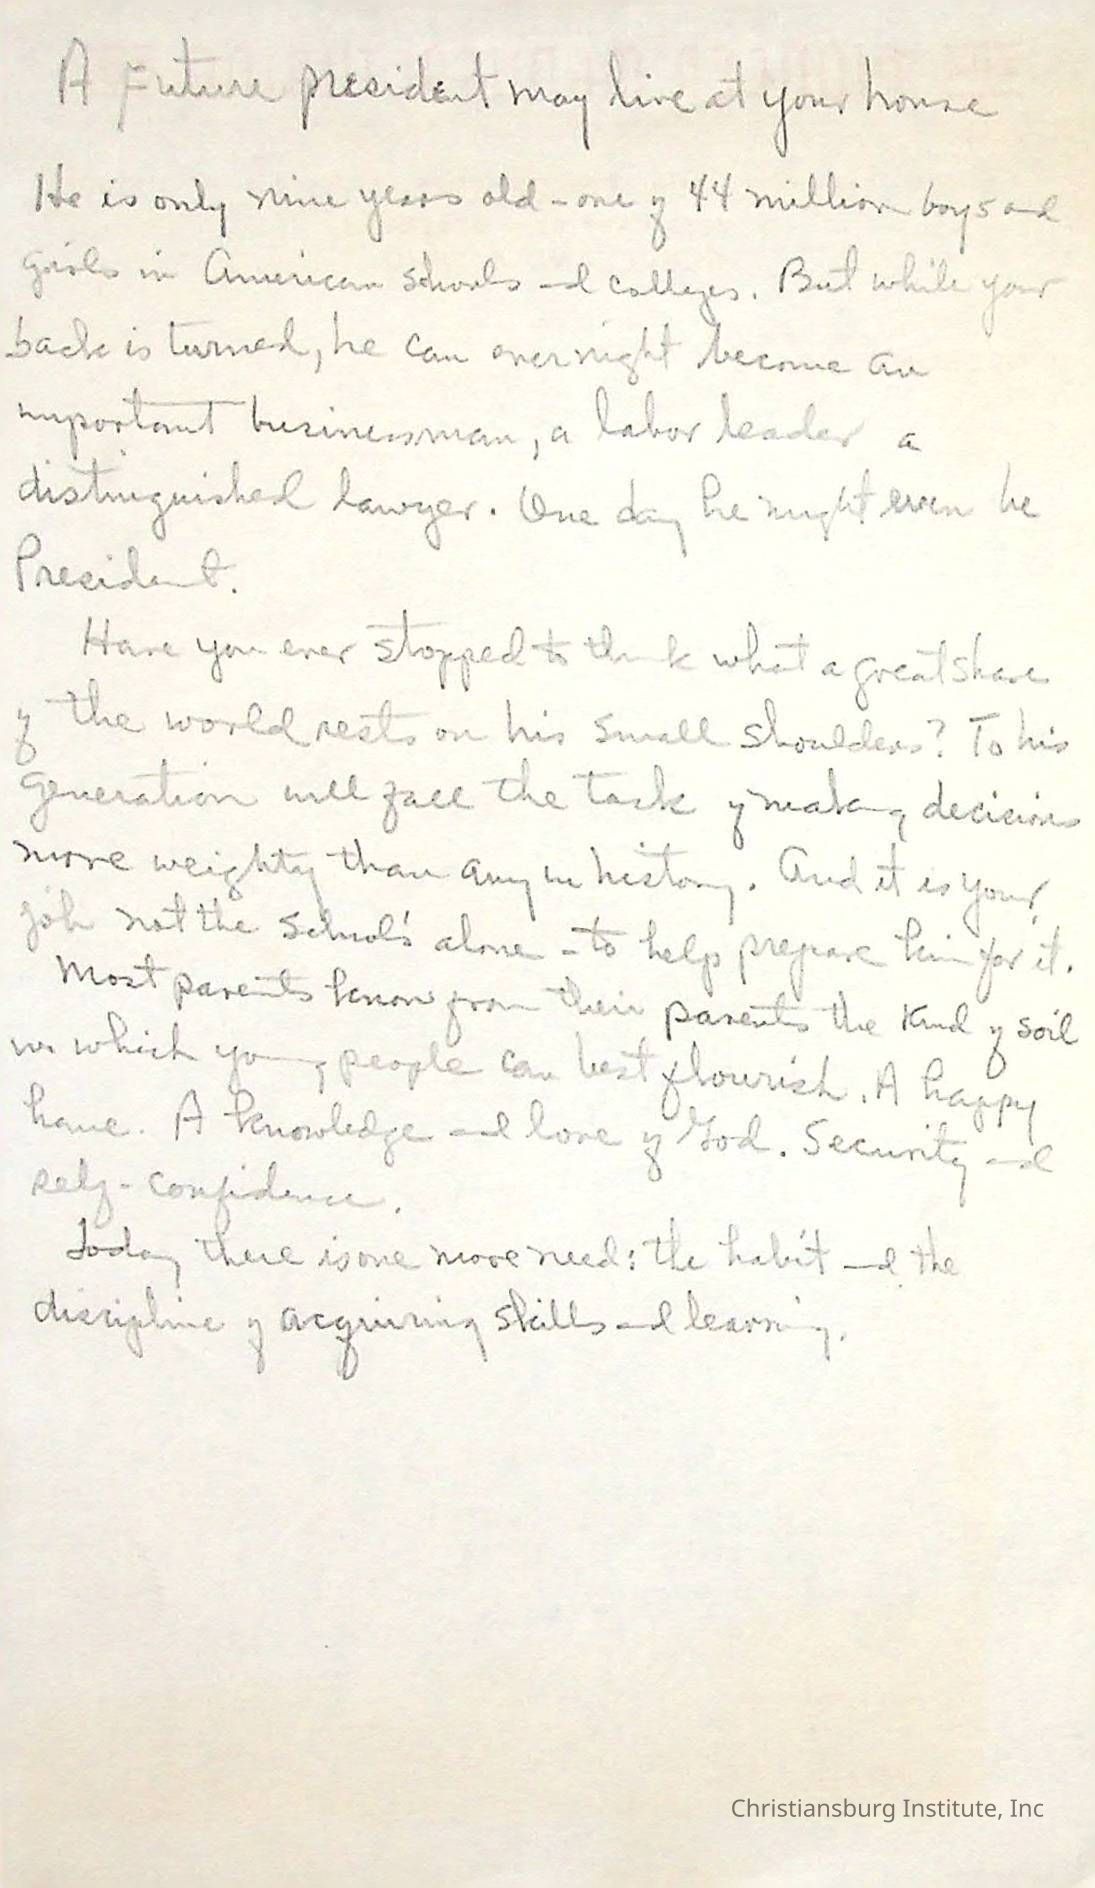 A Future president may live at your house
He is only nine years old - one of 44 million boys and
girls in American schools and colleges. But while your
back is turned, he can overnight become an
important businessman, a labor leader a
distinguished lawyer. One day he might even be
President.
Have you ever stopped to think what a great share
of the world rests on his small shoulders? To his
generation will fall the task of making decisions
more weighty than any in history. And it is your
job not the school's alone - to help prepare him for it.
Most parents know from their parents the kind of soil
in which young people can best flourish. A happy
home. A knowledge and love of God. Security and
self-confidence.
Today there is one more need: the habit and the
discipline of acquiring skills and learning.
Christiansburg Institute, Inc